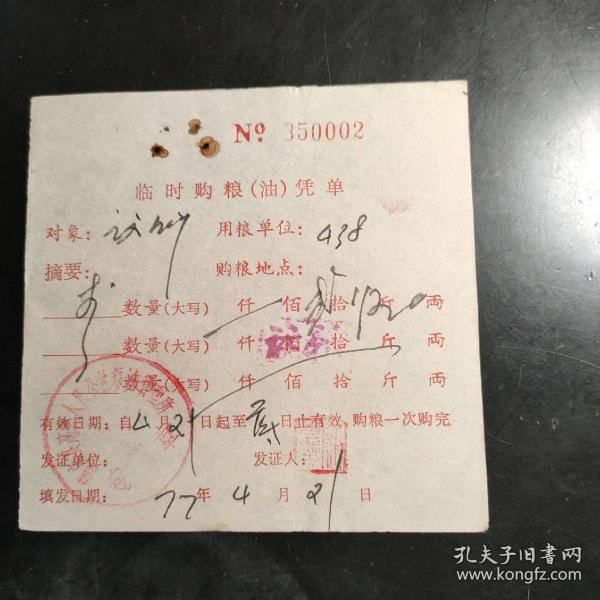 No 350002
临时购粮(油)凭单
对象: 用粮单位: 438
摘要: 购粮地点:
数量(大写) 仟 佰 拾 斤 両
数量(大写) 仟 佰 拾 斤 両
数量(大写) 仟 佰 拾 斤 両
有效日期: 自4月21日起至 日止有效, 购粮一次购完
发证单位: 发证人:
填发日期: 77年4月21日
孔夫子旧书网
www.kongfz.com